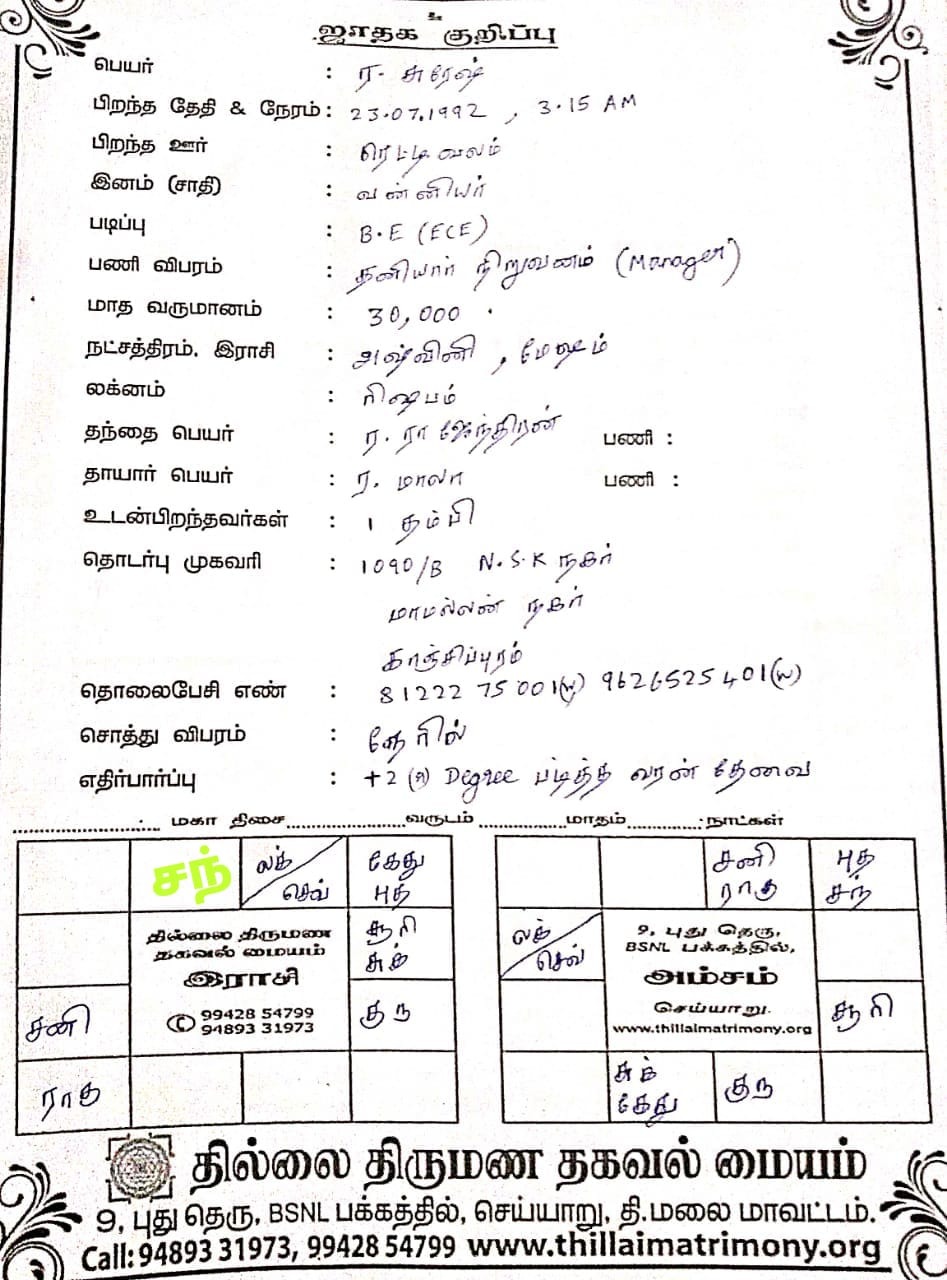 உ
ஜாதக குறிப்பு
பெயர் : ர. சுரேஷ்
பிறந்த தேதி & நேரம் : 23.07.1992 , 3.15 AM
பிறந்த ஊர் : ரெட்டிவலம்
இனம் (சாதி) : வன்னியர்
படிப்பு : B.E (ECE)
பணி விபரம் : தனியார் நிறுவனம் (Manager)
மாத வருமானம் : 30,000
நட்சத்திரம், இராசி : அஷ்வினி , மேஷம்
லக்னம் : ரிஷபம்
தந்தை பெயர் : ர. ராஜேந்திரன் பணி :
தாயார் பெயர் : ர. மாலா பணி :
உடன்பிறந்தவர்கள் : 1 தம்பி
தொடர்பு முகவரி : 1090/B N.S.K நகர்
மாமல்லன் நகர்
காஞ்சிப்புரம்
தொலைபேசி எண் : 81222 75001 9626525401
சொத்து விபரம் : நேரில்
எதிர்பார்ப்பு : +2 (or) Degree படித்த வரன் தேவை
மகா திசை வருடம் மாதம் நாட்கள்
சந் லக் செவ் கேது புத
சூரி சுக்
சனி குரு
ராகு
தில்லை திருமண
தகவல் மையம்
இராசி
99428 54799
94893 31973
சனி ராகு புத சந்
லக் செவ்
சூரி
சுக் கேது குரு
9, புது தெரு,
BSNL பக்கத்தில்,
அம்சம்
செய்யாறு.
www.thillaimatrimony.org
தில்லை திருமண தகவல் மையம்
9, புது தெரு, BSNL பக்கத்தில், செய்யாறு, தி.மலை மாவட்டம்.
Call: 94893 31973, 99428 54799 www.thillaimatrimony.org